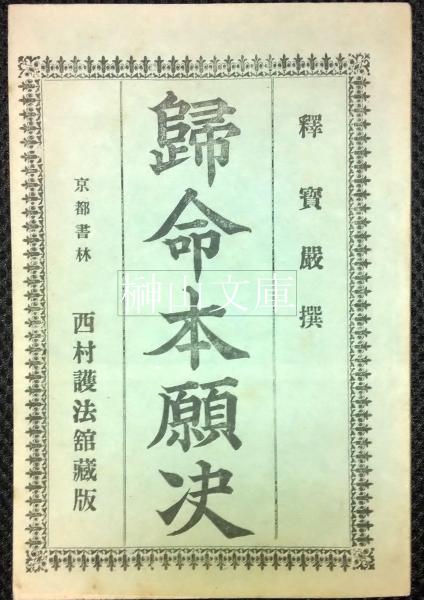 釋寳嚴撰
歸命本願决
京都書林 西村護法舘藏版
榊山文庫